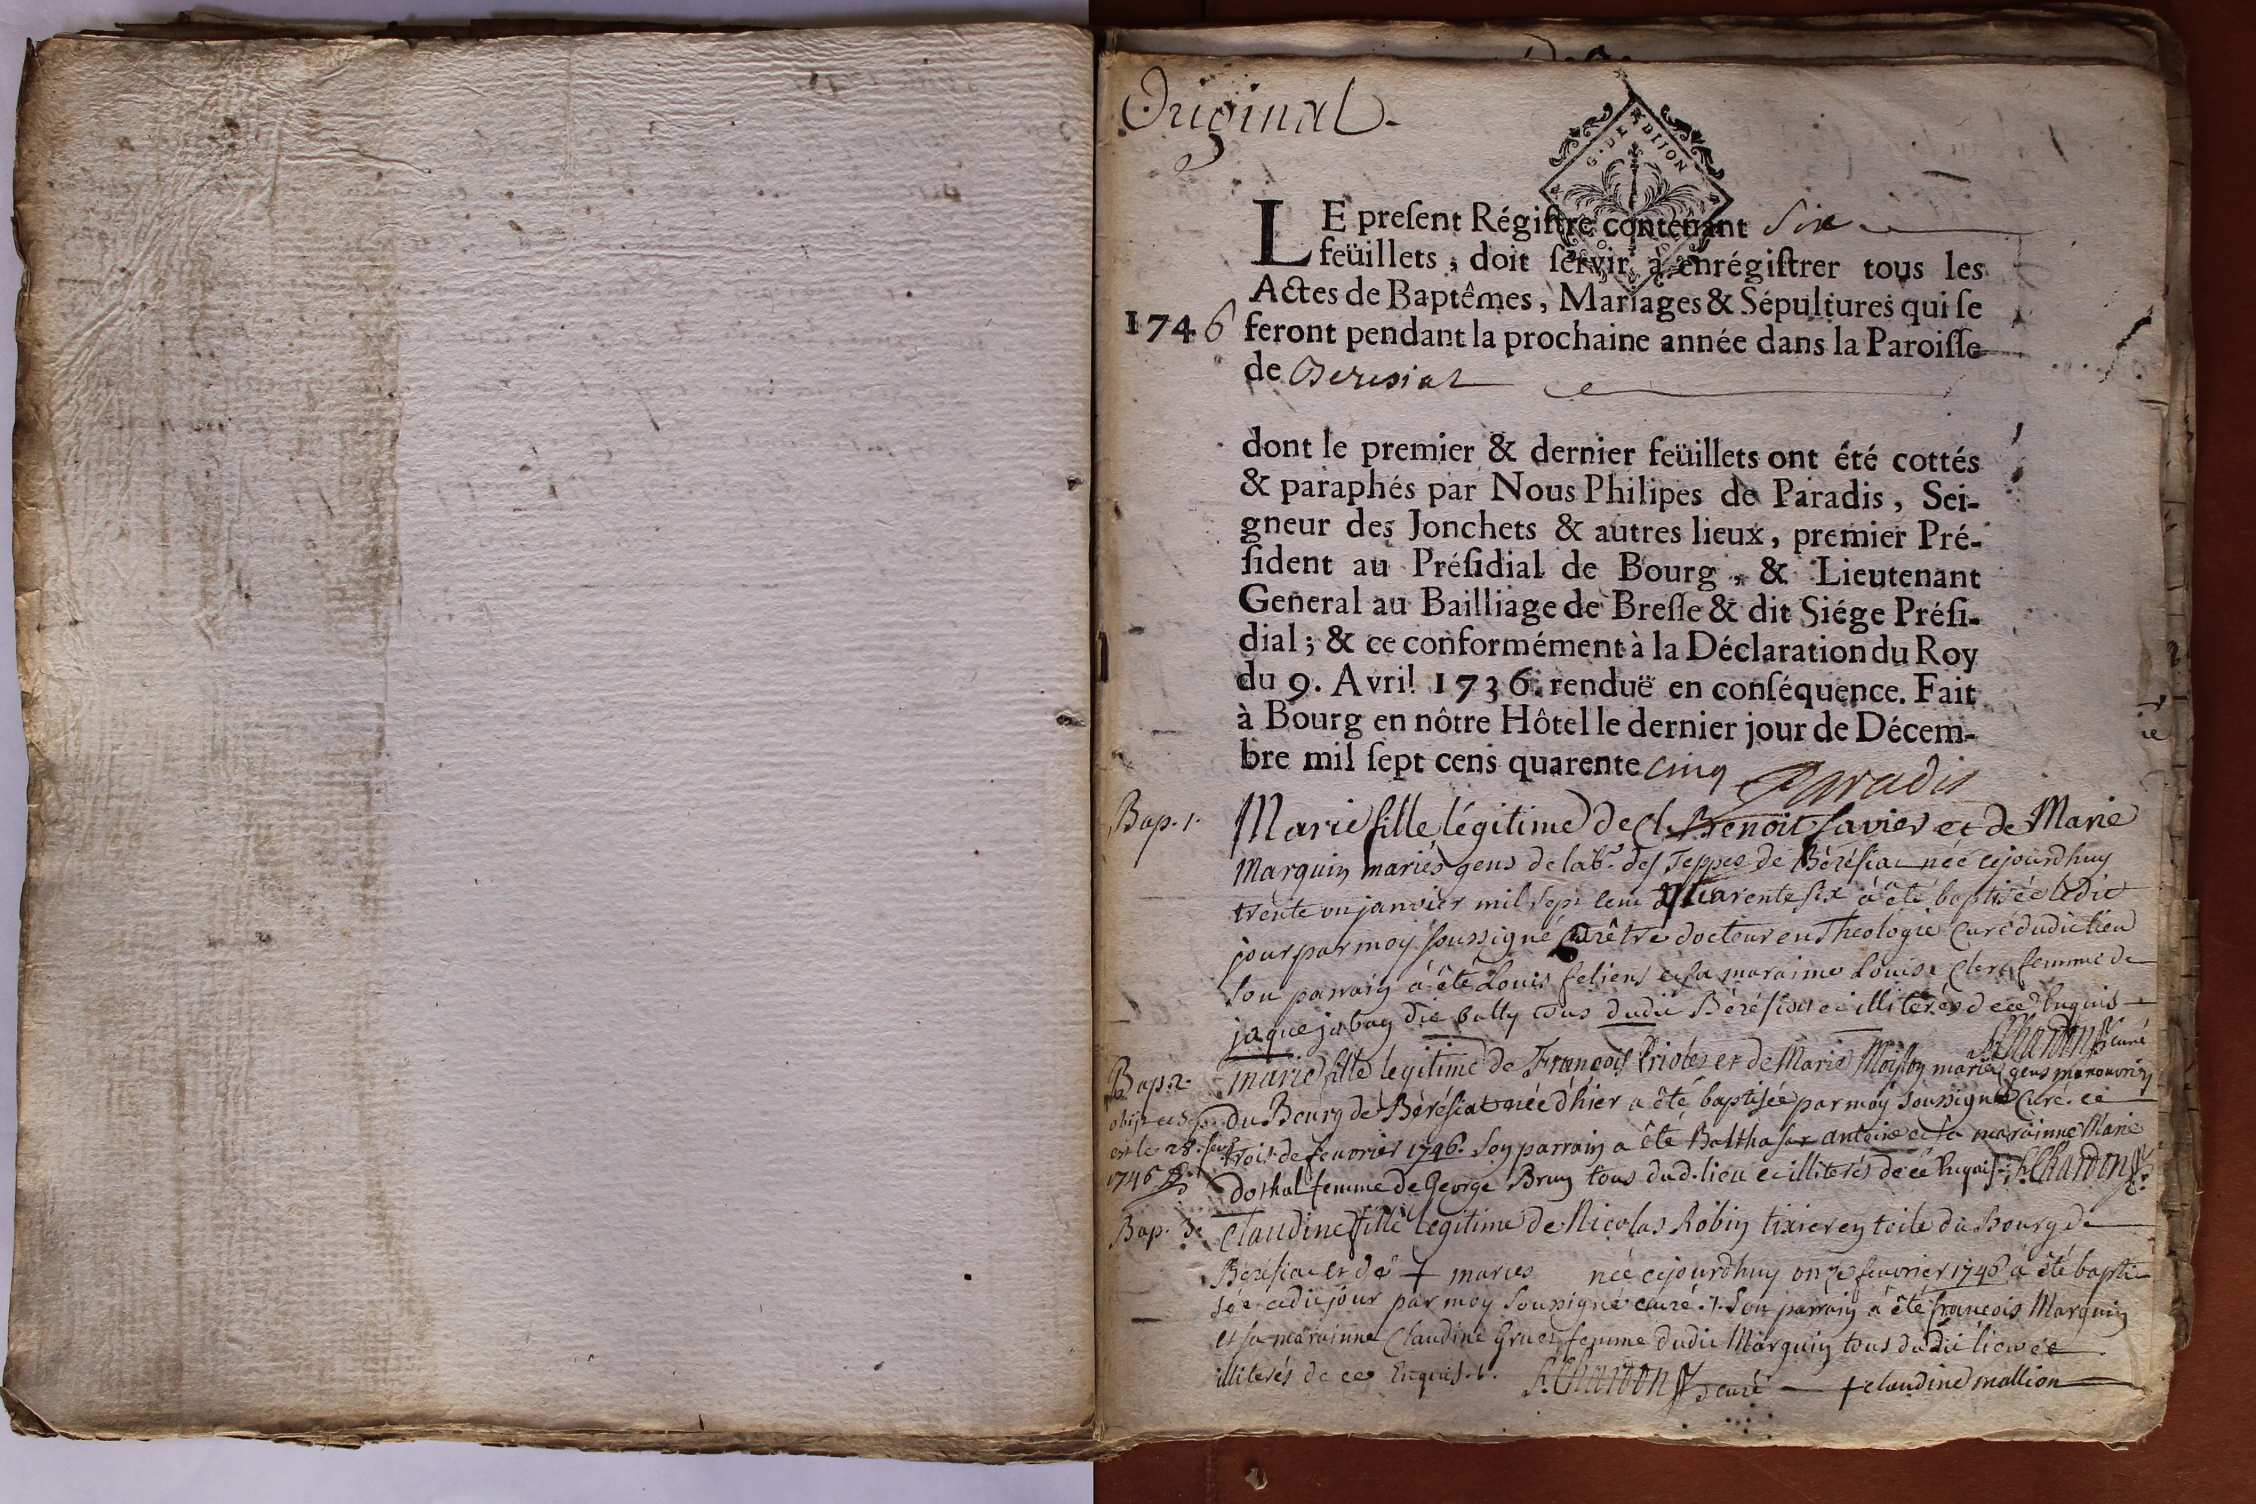 Original.
G. DE DIJON
LE preſent Régiſtre contenant Six
feüillets, doit ſervir à enrégiſtrer tous les
Actes de Baptêmes, Mariages & Sépultures qui ſe
1746 feront pendant la prochaine année dans la Paroiſſe
de Beresiat
dont le premier & dernier feüillets ont été cottés
& paraphés par Nous Philipes de Paradis, Sei-
gneur des Jonchets & autres lieux, premier Pré-
ſident au Préſidial de Bourg, & Lieutenant
General au Bailliage de Breſſe & dit Siége Préſi-
dial; & ce conformément à la Déclaration du Roy
du 9. Avril 1736. renduë en conſéquence. Fait
à Bourg en nôtre Hôtel le dernier jour de Décem-
bre mil ſept cens quarente cinq Paradis
Bap. 1. Marie fille légitime de Cl. Benoit favier et de Marie
Marquin mariés gens de lab.r des Teppes de Bérésiat née cejourdhuy
trente un janvier mil sept cent quarente six à été baptisée ledit
jour par moy soussigné prêtre docteur en Theologie Curé dudit lieu
son parrain à été Louis feliens et sa maraine Louise Clerc femme de
jaque jabay dit batty tous dudit Bérésiat et illiterés de ce Enquis
F. Chardon curé
Bap. 2. marie fille legitime de François Priolet et de Marie Moisson mariés gens manouvriers
obijt du Bourg de Bérésiat née d'hier a été baptisée par moy soussigné Curé ce
et le 28. trois de feuvrier 1746. son parrain a été Balthasar antoine et sa marainne Marie
1746 dothal femme de George Brun tous dud. lieu et illiterés de ce Enquis F. Chardon
Bap. 3. Claudine fille legitime de Nicolas Robin tixier en toile du Bourg de
Berésiat et de + mariés née cejourdhuy onze feuvrier 1746 a été bapti-
sée cedit jour par moy soussigné curé. son parrain a été françois Marquin
et sa marainne Claudine Gruet femme dudit Marquin tous dudit lieu et
illiterés de ce Enquis. F. Chardon curé + claudine mallion